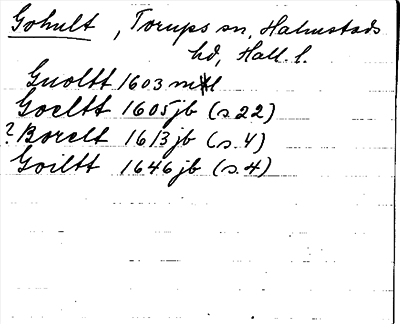 Gohult, Torups sn, Halmstads
hd, Hall. l.
Guoltt 1603 ml
Goeltt 1605 jb (s. 22)
? Borelt 1613 jb (s. 4)
Goiltt 1646 jb (s. 4)